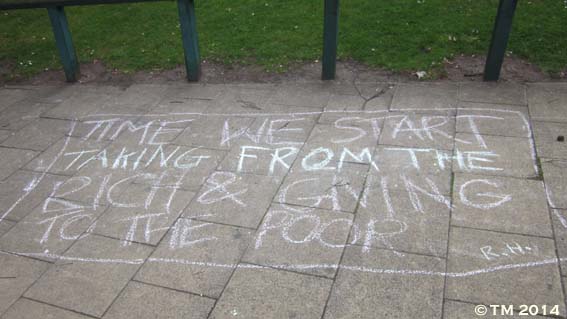 TIME WE START
TAKING FROM THE
RICH & GIVING
TO THE POOR
R.H.
© TM 2014